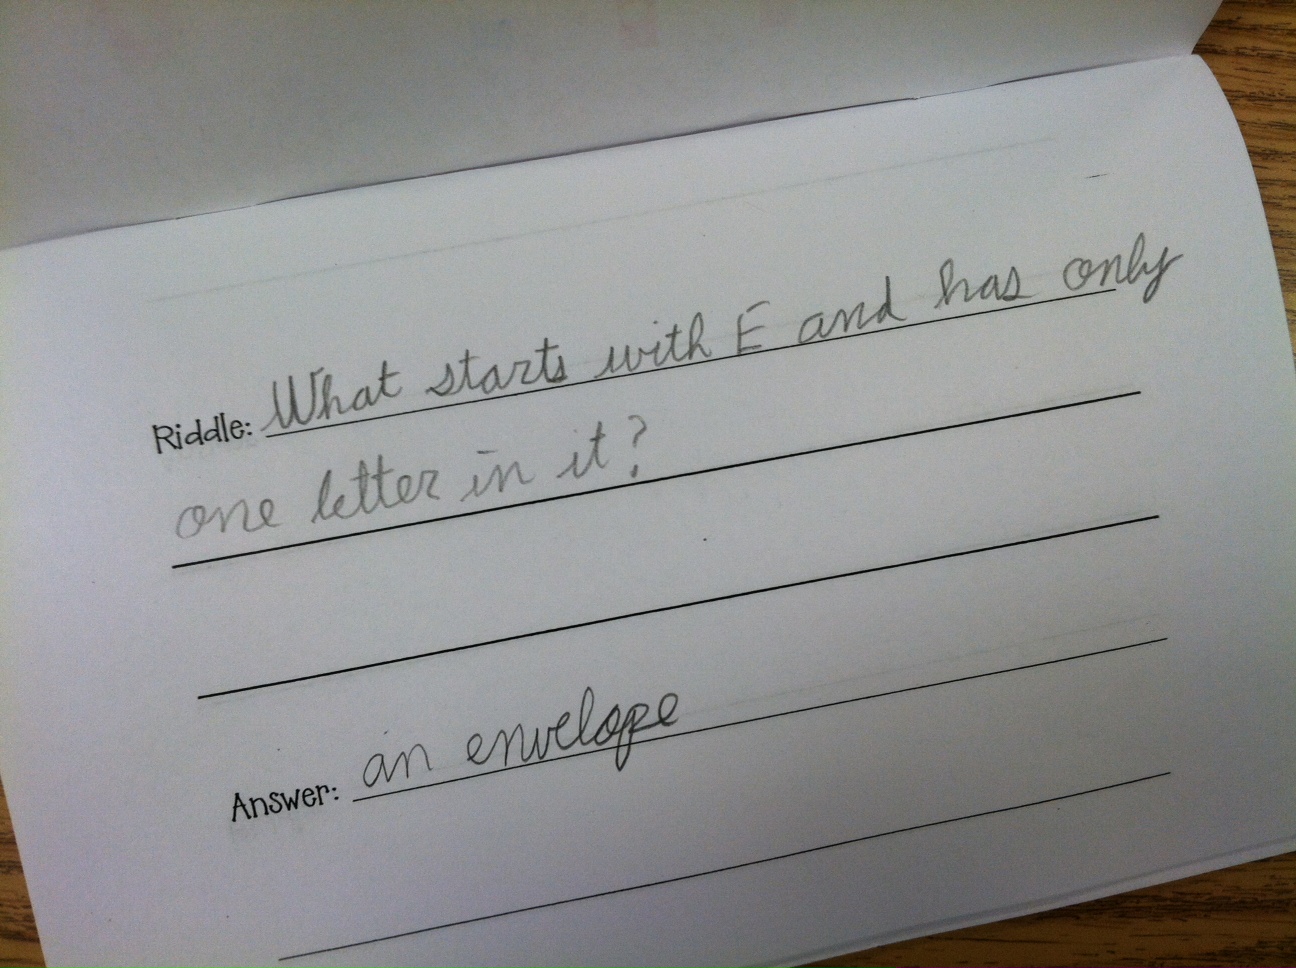 Riddle: What starts with E and has only
one letter in it?
Answer: an envelope